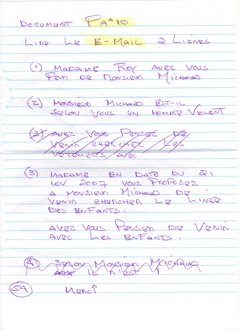 DOCUMENT PA^10
LIRE LE E-MAIL 2 LIGNES
(1) MADAME ROY AVEZ VOUS
PEUR DE MONSIEUR MICHAUD
(2) MONSIEUR MICHAUD EST-IL
SELON VOUS UN HOMME VIOLENT
(3) AVEZ VOUS PENSEZ DE
VENIR CHERCHEZ LES
VETEMENTS AVEC
(3) MADAME EN DATE DU 21
NOV 2007 VOUS PROPOSEZ
A MONSIEUR MICHAUD DE
VENIR CHERCHER LE LINGE
DES ENFANTS.
AVEZ VOUS PENSER DE VENIR
AVEC LES ENFANTS.
(4) SELON MONSIEUR MICHAUD
IL N'EST
54 MERCI